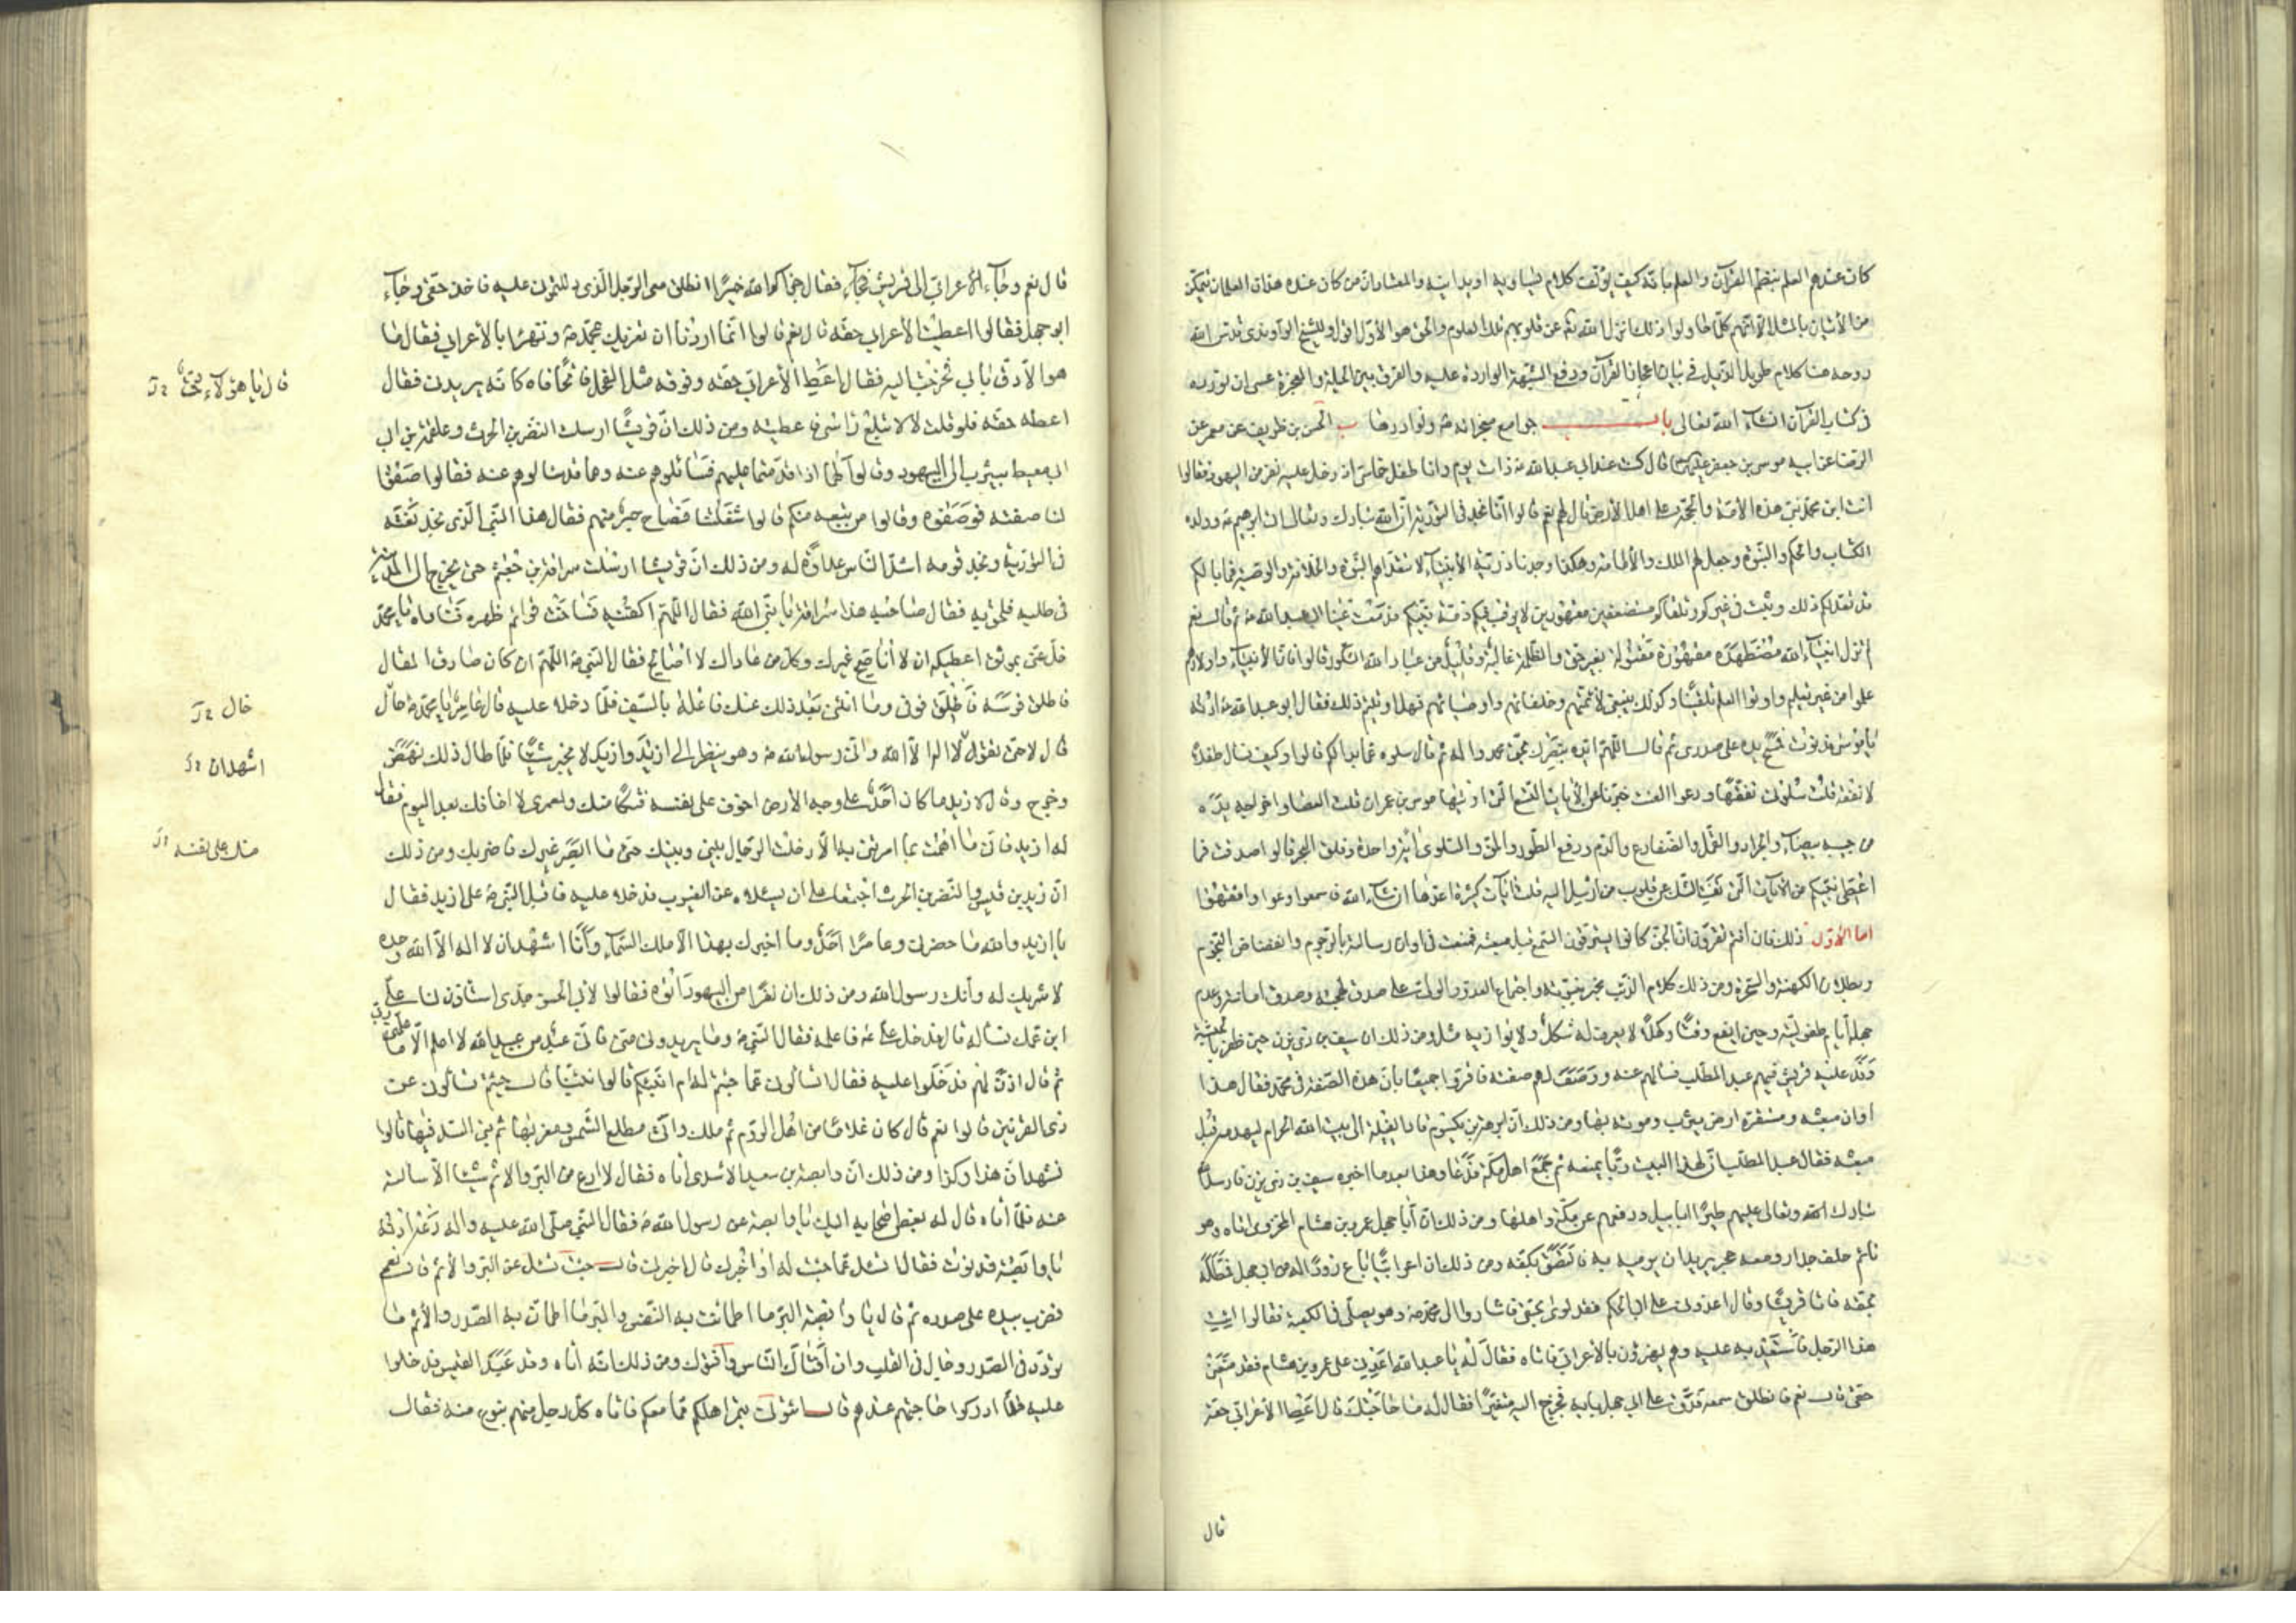 كان عندهم العلم بنظم القرآن والعلم بانه كيف يؤلف كلام يساويه او يدانيه والمعتاد ان من كان عنده هذان العلمان يتمكن
من الاتيان بالمثل الا انهم كلما حاولوا ذلك ازال الله تع عن قلوبهم تلك العلوم والحق هو الأول اقول وللشيخ الراوندي قدس الله
روحه هنا كلام طويل الذيل في بيان اعجاز القرآن ودفع الشبهة الواردة عليه والفرق بين الحيلة والمعجزة عسى ان نورده
في كتاب القرآن انشاء الله تعالى باب جوامع معجزاته ص ونوادرها ب الحسن بن ظريف عن معمر عن
الرضا عن ابيه موسى بن جعفر عليهم قال كنت عند ابي عبد الله ع ذات يوم وانا طفل خماسي اذ دخل عليه نفر من اليهود فقالوا
انت ابن محمد نبي هذه الأمة والحجة على اهل الأرض قال لهم نعم قالوا انا نجد في التورية ان الله تبارك وتعالى اتى ابرهيم ع وولده
الكتاب والحكم والنبوة وجعل لهم الملك والأمامة وهكذا وجدنا ذرية الأنبياء لا تتعداهم النبوة والخلافة والوصية فما بالكم
قد تعداكم ذلك وثبت في غيركم ونلقاكم مستضعفين مقهورين لا يرقب فيكم ذمة نبيكم فدمعت عينا ابي عبد الله ع ثم قال نعم
لم تزل انبياء الله مضطهدة مقهورة مقتولة بغير حق والظلمة غالبة وقليل من عباد الله الشكور قالوا فان الأنبياء واولادهم
علموا من غير تعليم واوتوا العلم تلقينا وكذلك ينبغي لأئمتهم وخلفائهم واوصيائهم فهل اوتيتم ذلك فقال ابو عبد الله ع ادنه
يا موسى فدنوت فمسح يده على صدري ثم قال اللهم ايده بنصرك بحق محمد واله ثم قال سلوه عما بدا لكم قالوا وكيف نسأل طفلا
لا يفقه قلت سلوني تفقها ودعوا العنت قالوا اخبرنا عن الأيات التسع التي اوتيها موسى بن عمران قلت العصا واخراجه يده
من جيبه بيضاء والجراد والقمل والضفادع والدم ورفع الطور والمن والسلوى اية واحدة وفلق البحر قالوا صدقت فما
اعطي نبيكم من الأيات التي نفت الشك عن قلوب من ارسل اليه قلت ايات كثيرة اعدها ان شاء الله فاسمعوا وعوا وافقهوا
اما الأول ذلك فان انتم تقرون ان الجن كانوا يسترقون السمع قبل مبعثه فمنعت في اوان رسالته بالرجوم وانقضاض النجوم
وبطلان الكهنة والسحرة ومن ذلك كلام الذئب يخبر بنبوته واجتماع العدو والولي على صدق لهجته وصدق امانته وعدم
جهله ايام طفوليته وحين ايفع وفتى وكهلا لا يعرف له شكل ولا يوازيه مثل ومن ذلك ان سيف بن ذي يزن حين ظفر بالحبشة
وفد عليه قريش فيهم عبد المطلب فسألهم عنه ووصف لهم صفته فاقروا جميعا بان هذه الصفة في محمد فقال هذا
اوان مبعثه ومستقره ارض يثرب وموته بها ومن ذلك ان ابرهة بن يكسوم قاد الفيلة الى بيت الله الحرام ليهدمه قبل
مبعثه فقال عبد المطلب ان لهذا البيت ربا يمنعه ثم جمع اهل مكة فدعا وهذا بعد ما اخبره سيف بن ذي يزن فارسل
تبارك الله وتعالى عليهم طيرا ابابيل ودفعهم عن مكة واهلها ومن ذلك ان ابا جهل عمرو بن هشام المخزومي اتاه وهو
نائم خلف جدار ومعه حجر يريد ان يرميه به فالتصق بكفه ومن ذلك ان اعرابيا باع ذودا له من ابي جهل فمطله
بحقه فاتى قريشا وقال اعدوني على ابي الحكم فقد لوى بحقي فاشاروا الى محمد ص وهو يصلي في الكعبة فقالوا ايت
هذا الرجل فاستعديه عليه وهم يهزؤن بالأعرابي فاتاه فقال له يا عبد الله اعدني على عمرو بن هشام فقد منعني
حقي قال نعم فانطلق معه فدق على ابي جهل بابه فخرج اليه متغيرا فقال له ما حاجتك قال اعط الأعرابي حقه
قال
قال نعم وجاء الأعرابي الى قريش فقال جزاكم الله خيرا انطلق معي الرجل الذي دللتموني عليه فاخذ حقي وجاء
ابو جهل فقالوا اعطيت الأعرابي حقه قال نعم قالوا انما اردنا ان نغريك بمحمد ص ونهزأ بالأعرابي فقال ما
هو الا دق بابي فخرجت اليه فقال اعط الأعرابي حقه وفوقه مثل الفحل فاتحا فاه كانه يريدني فقال
قال يا هؤلاء
اعطه حقه فلو قلت لا لابتلع راسي فاعطيته ومن ذلك ان قريشا ارسلت النضر بن الحرث وعلقمة بن ابي
ابي معيط بيثرب الى اليهود وقالوا لهما اذا قدمتما عليهم فسائلوهم عنه وهما قد سالوهم عنه فقالوا صفوا
لنا صفته فوصفوه وقالوا من تبعه منكم قالوا سفلتنا فصاح حبر منهم فقال هذا النبي الذي نجد نعته
في التورية ونجد قومه اشد الناس عداوة له ومن ذلك ان قريشا ارسلت سراقة بن جعشم حتى يخرج الى المدينة
في طلبه فلحق به فقال صاحبه هذا سراقة يا نبي الله فقال اللهم اكفنيه فساخت قوائم ظهره فناداه يا محمد
خل عني بموثق اعطيكه ان لا اناصح غيرك وكل من عاداك لا اصالح فقال النبي ص اللهم ان كان صادق المقال
فاطلق فرسه فانطلق فوفى وما انثنى بعد ذلك
فلما دخلا عليه قال عامر يا محمد ص خال
خال
قال لا حتى تقول لا اله الا الله واني رسول الله ص وهو ينظر الى ازيد وازيد لا يخير شيئا فلما طال ذلك نهض
اشهد ان
وخرج وقال لازيد ما كان احد على وجه الأرض اخوف على نفسه فتكا منك ولعمري لا اخافك بعد اليوم فقال
له ازيد فان ما هممت بما امرتني به الا دخلت الرجال بيني وبينك حتى ما ابصر غيرك فاضربك ومن ذلك
منك على نفسه
ان زيد بن قيس والنضر بن الحرث اجتمعا على ان يسئلاه عن الغيوب فدخلا عليه فاقبل النبي ص على ازيد فقال
يا ازيد
والله ما حضرني وعامرا احد وما اخبرك بهذا الا ملك السماء وانا اشهد ان لا اله الا الله وحده
لا شريك له وانك رسول الله ومن ذلك ان نفرا من اليهود اتوه فقالوا لأبي الحسن جدي استأذن لنا على
ابن عمك نسأله قال فدخل علي ع فاعلمه فقال النبي ص وما يريدون مني فاني عبد من عبيد الله لا اعلم الا ما علمني ربي
ثم قال ائذن لهم فدخلوا عليه فقال اتسألوني عما جئتم له ام انبئكم قالوا نبئنا قال جئتم تسألوني عن
ذي القرنين قالوا نعم قال كان غلاما من اهل الروم ثم ملك واتى مطلع الشمس ومغربها ثم بنى السد فيها قالوا
نشهد ان هذا كذا ومن ذلك ان وابصة بن معبد الأسدي اتاه فقال لا ادع من البر والاثم شيئا الا سألته
عنه فلما اتاه قال له بعض اصحابه اليك يا وابصة عن رسول الله ص فقال النبي صلى الله عليه واله دعه ادنه
يا وابصة فدنوت فقال اتسئل عما جئت له او اخبرك قال اخبرني قال جئت تسئل عن البر والأثم قال نعم
فضرب بيده على صدره ثم قال يا وابصة البر ما اطمانت به النفس والبر ما اطمأن به الصدر والأثم ما
تردد في الصدر وجال في القلب وان افتاك الناس وافتوك ومن ذلك انه اتاه وفد عبد القيس فدخلوا
عليه فلما ادركوا حاجتهم عنده قال ائتوني بتمر اهلكم مما معكم فاتاه كل رجل منهم بنوع منه فقال